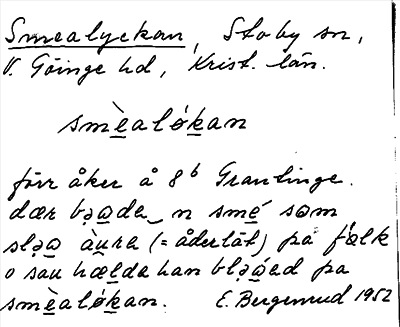 Smealyckan, Stoby sn,
V. Göinge hd, Krist. län.
smèalókan
förr åker å 8⁶ Grantinge.
dær bǝoda n smé som
slǝo àura (= åderlät) på fælk
o sau hælda han blǝóed pa
smèalókan. E. Bergerud 1952